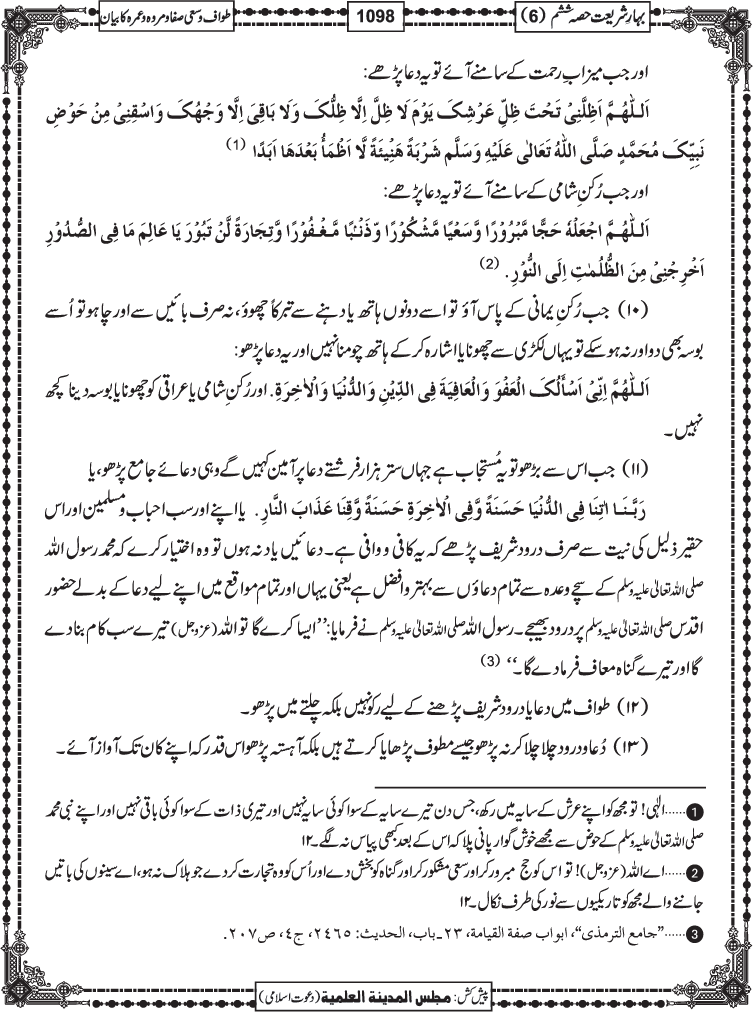 بہار شریعت حصہ ششم (6)
1098
طواف وسعی صفا و مروہ و عمرہ کا بیان
اور جب میزابِ رحمت کے سامنے آئے تو یہ دعا پڑھے:
اَللّٰهُمَّ اَظِلَّنِیْ تَحْتَ ظِلِّ عَرْشِکَ یَوْمَ لَا ظِلَّ اِلَّا ظِلُّکَ وَلَا بَاقِیَ اِلَّا وَجْهُکَ وَاسْقِنِیْ مِنْ حَوْضِ
نَبِیِّکَ مُحَمَّدٍ صَلَّی اللّٰهُ تَعَالٰی عَلَیْهِ وَسَلَّم شَرْبَةً هَنِیْئَةً لَّا اَظْمَأُ بَعْدَهَا اَبَدًا (1)
اور جب رُکنِ شامی کے سامنے آئے تو یہ دعا پڑھے:
اَللّٰهُمَّ اجْعَلْهُ حَجًّا مَّبْرُوْرًا وَّسَعْیًا مَّشْکُوْرًا وَّذَنْۢبًا مَّغْفُوْرًا وَّتِجَارَةً لَّنْ تَبُوْرَ یَا عَالِمَ مَا فِی الصُّدُوْرِ
اَخْرِجْنِیْ مِنَ الظُّلُمٰتِ اِلَی النُّوْرِ. (2)
(۱۰) جب رُکنِ یمانی کے پاس آؤ تو اسے دونوں ہاتھ یا دہنے سے تبرکاً چھوؤ، نہ صرف بائیں سے اور چاہو تو اُسے
بوسہ بھی دو اور نہ ہوسکے تو یہاں لکڑی سے چھونا یا اشارہ کرکے ہاتھ چومنا نہیں اور یہ دعا پڑھو:
اَللّٰهُمَّ اِنِّیْ اَسْأَلُکَ الْعَفْوَ وَالْعَافِیَةَ فِی الدِّیْنِ وَالدُّنْیَا وَالْاٰخِرَةِ. اور رُکنِ شامی یا عراقی کو چھونا یا بوسہ دینا کچھ
نہیں۔
(۱۱) جب اس سے بڑھو تو یہ مُستجاب ہے جہاں ستر ہزار فرشتے دعا پر آمین کہیں گے وہی دعائے جامع پڑھو، یا
رَبَّنَا اٰتِنَا فِی الدُّنْیَا حَسَنَةً وَّفِی الْاٰخِرَةِ حَسَنَةً وَّقِنَا عَذَابَ النَّارِ. یا اپنے اور سب احباب و مسلمین اور اس
حقیر ذلیل کی نیت سے صرف درود شریف پڑھے کہ یہ کافی و وافی ہے۔ دعائیں یاد نہ ہوں تو وہ اختیار کرے کہ محمد رسول اللہ
صلی اللہ تعالٰی علیہ وسلم کے سچے وعدہ سے تمام دعاؤں سے بہتر و افضل ہے یعنی یہاں اور تمام مواقع میں اپنے لیے دعا کے بدلے حضور
اقدس صلی اللہ تعالٰی علیہ وسلم پر درود بھیجے۔ رسول اللہ صلی اللہ تعالٰی علیہ وسلم نے فرمایا: ''ایسا کرے گا تو اللہ (عزوجل) تیرے سب کام بنا دے
گا اور تیرے گناہ معاف فرما دے گا۔'' (3)
(۱۲) طواف میں دعا یا درود شریف پڑھنے کے لیے رکو نہیں بلکہ چلتے میں پڑھو۔
(۱۳) دُعا و درود چلا چلا کر نہ پڑھو جیسے مطوف پڑھایا کرتے ہیں بلکہ آہستہ پڑھو اس قدر کہ اپنے کان تک آواز آئے۔
1 ......الٰہی! تو مجھ کو اپنے عرش کے سایہ میں رکھ، جس دن تیرے سایہ کے سوا کوئی سایہ نہیں اور تیری ذات کے سوا کوئی باقی نہیں اور اپنے نبی محمد
صلی اللہ تعالٰی علیہ وسلم کے حوض سے مجھے خوش گوار پانی پلا کہ اس کے بعد کبھی پیاس نہ لگے۔۱۲
2 ......اے اللہ (عزوجل)! تو اس کو حج مبرور کر اور سعی مشکور کر اور گناہ کو بخش دے اور اُس کو وہ تجارت کردے جو ہلاک نہ ہو، اے سینوں کی باتیں
جاننے والے مجھ کو تاریکیوں سے نور کی طرف نکال۔۱۲
3 ......''جامع الترمذی''، ابواب صفة القیامة، ۲۳۔باب، الحدیث: ۲۴۶۵، ج۴، ص۲۰۷.
پیش کش: مجلس المدینة العلمیة (دعوت اسلامی)